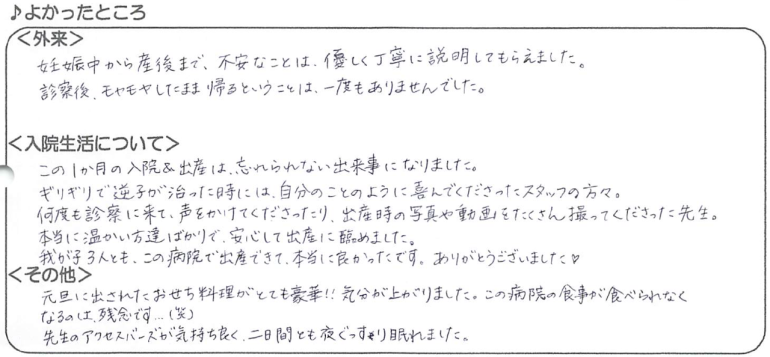 ♪よかったところ
＜外来＞
妊娠中から産後まで、不安なことは、優しく丁寧に説明してもらえました。
診察後、モヤモヤしたまま帰るということは、一度もありませんでした。
＜入院生活について＞
この1か月の入院&出産は、忘れられない出来事になりました。
ギリギリで逆子が治った時には、自分のことのように喜んでくださったスタッフの方々。
何度も診察に来て、声をかけてくださったり、出産時の写真や動画をたくさん撮ってくださった先生。
本当に温かい方達ばかりで、安心して出産に臨めました。
我が子3人とも、この病院で出産できて、本当に良かったです。ありがとうございました♡
＜その他＞
元旦に出されたおせち料理がとても豪華!!気分が上がりました。この病院の食事が食べられなく
なるのは、残念です…(笑)
先生のアクセスバーズが気持ち良く、二日間とも夜ぐっすり眠れました。